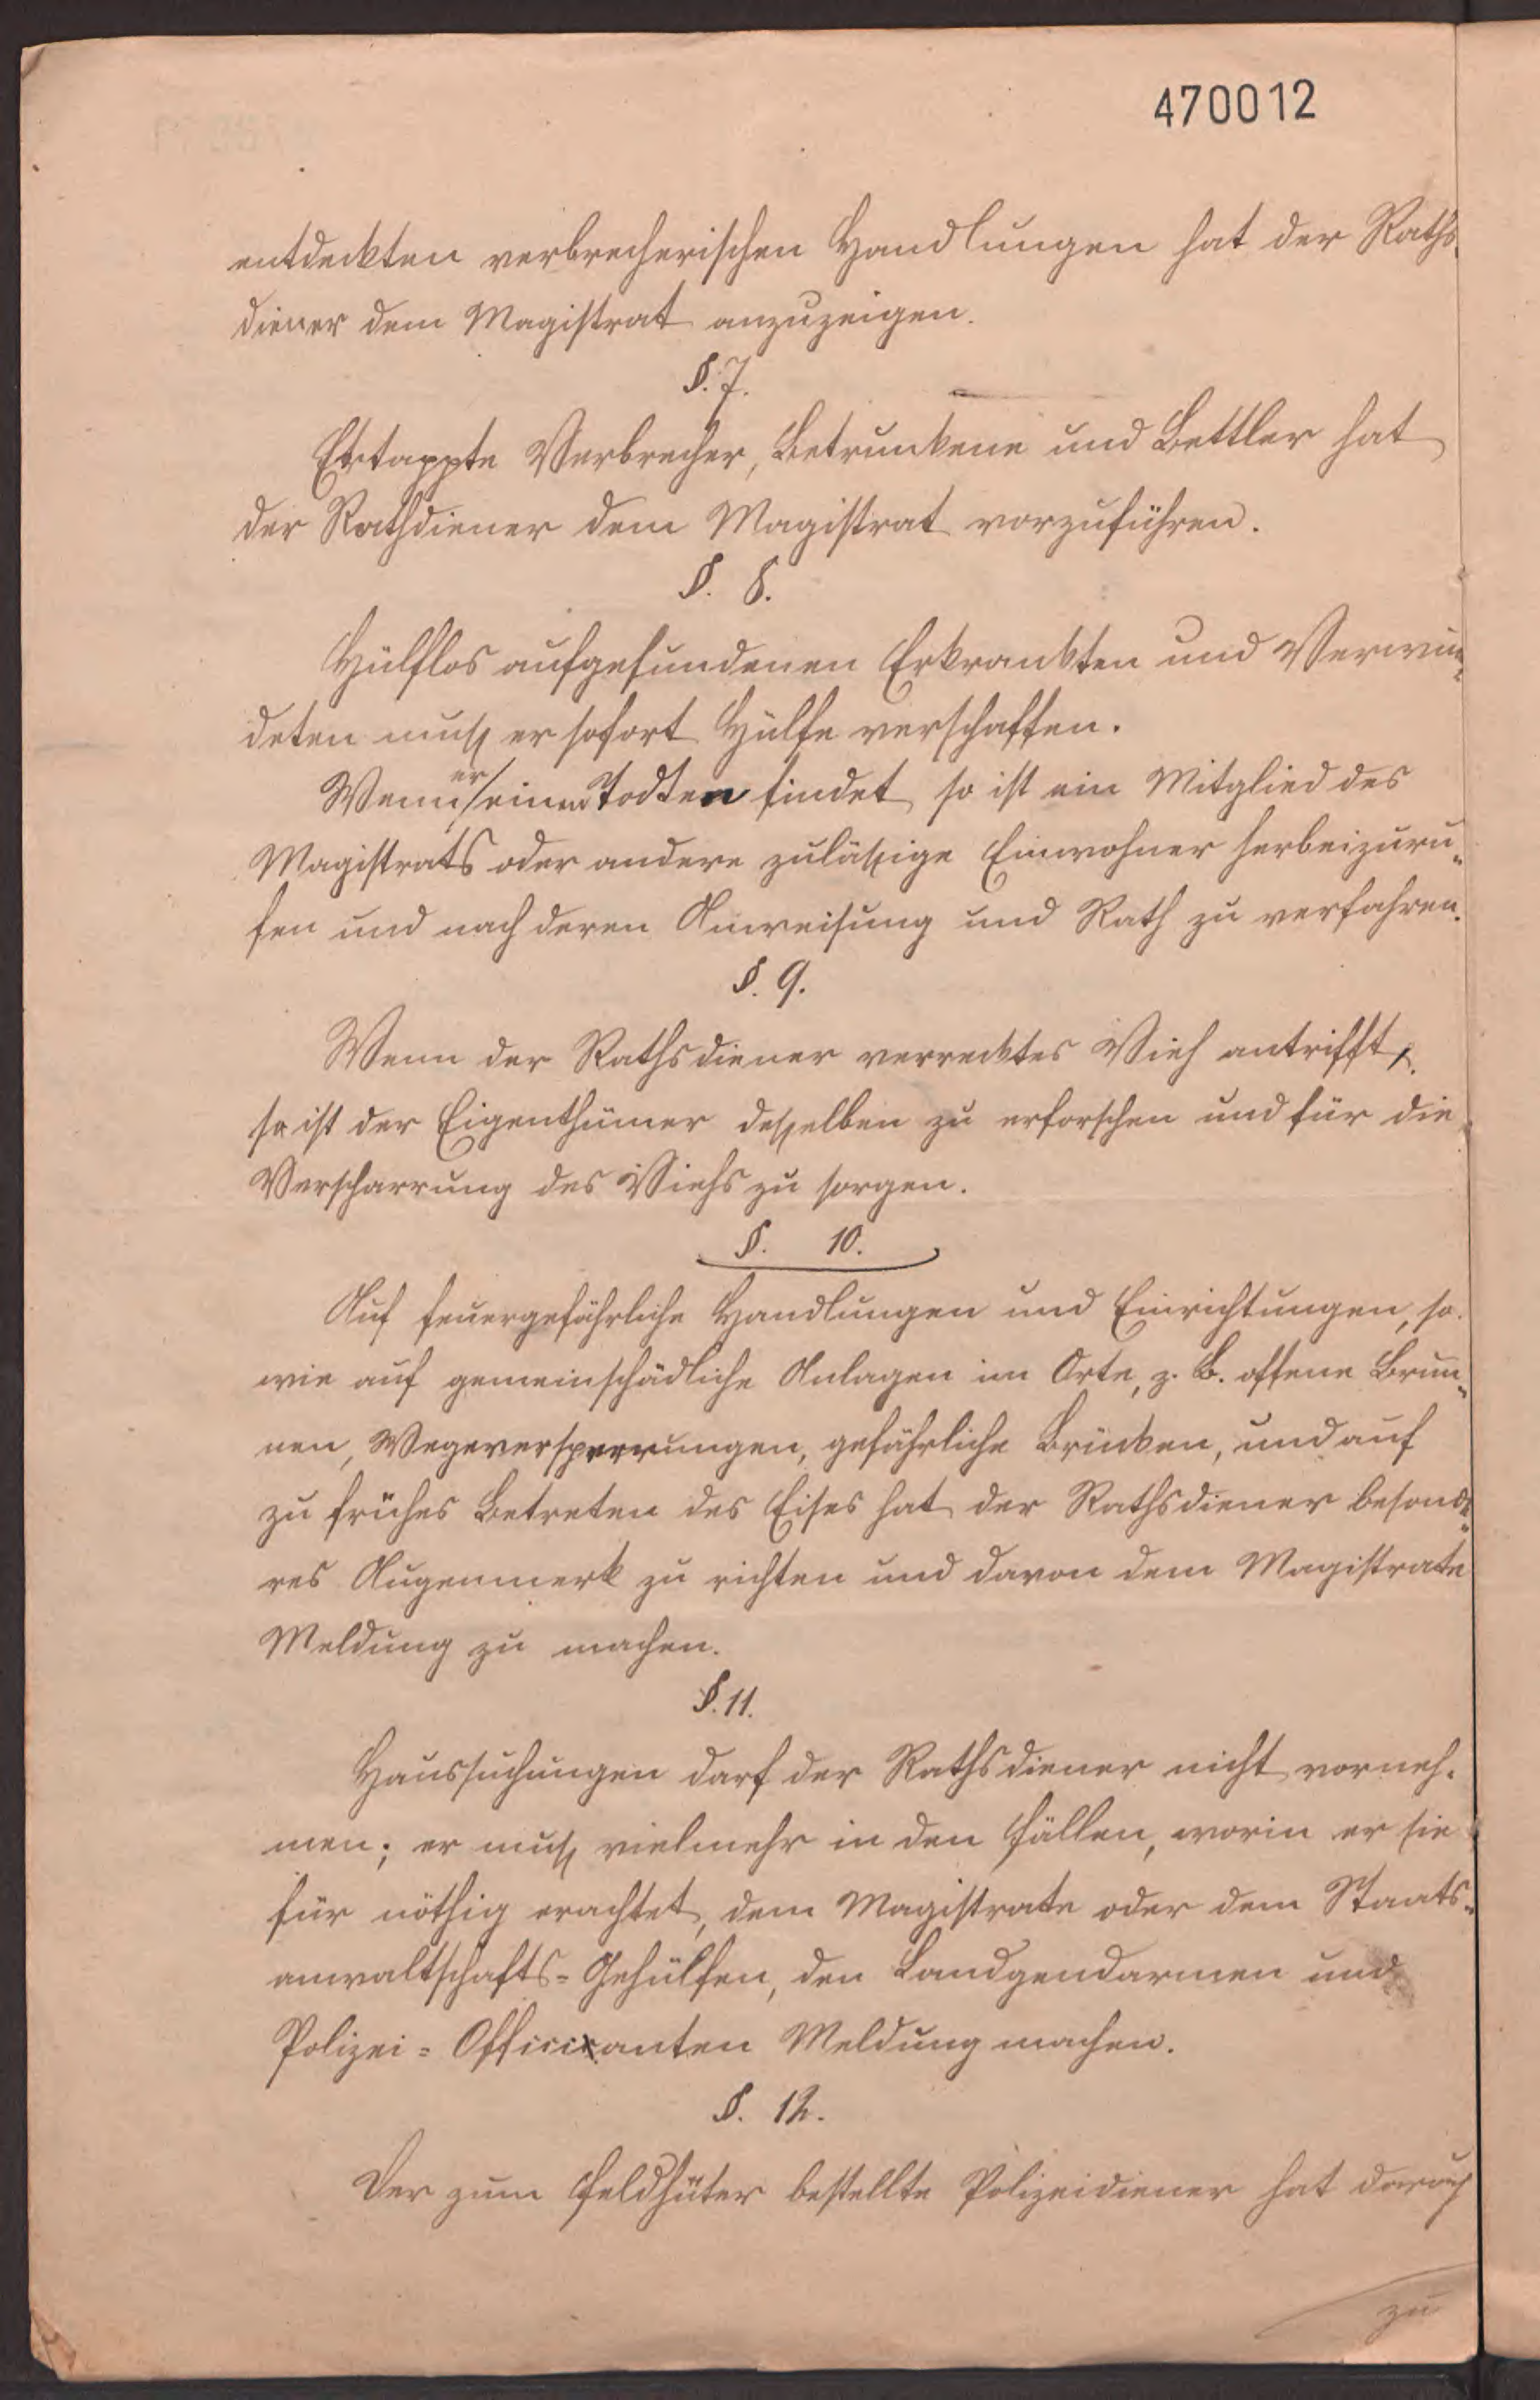 470012
entdeckten verbrecherischen Handlungen hat der Raths-
diener dem Magistrat anzuzeigen.
§. 7.
Ertappte Verbrecher, Betrunkene und Bettler hat
der Rathdiener dem Magistrat vorzuführen.
§. 8.
Hülflos aufgefundenen Erkrankten und Verwun-
deten muß er sofort Hülfe verschaffen.
Wenn er einen Todten findet so ist ein Mitglied des
Magistrats oder andere zuläßige Einwohner herbeizuru-
fen und nach deren Anweisung und Rath zu verfahren.
§. 9.
Wenn der Rathsdiener verrecktes Vieh antrifft,
so ist der Eigenthümer desselben zu erforschen und für die
Verscharrung des Viehs zu sorgen.
§. 10.
Auf feuergefährliche Handlungen und Einrichtungen, so-
wie auf gemeinschädliche Anlagen im Orte, z. B. offene Brun-
nen, Wegeversperrungen, gefährliche Brücken, und auf
zu frühes Betreten des Eises hat der Rathsdiener besonde-
res Augenmerk zu richten und davon dem Magistrate
Meldung zu machen.
§. 11.
Haussuchungen darf der Rathsdiener nicht vorneh-
men; er muß vielmehr in den Fällen, worin er sie
für nöthig erachtet, dem Magistrate oder dem Staats-
anwaltschafts-Gehülfen, den Landgendarmen und
Polizei-Officianten Meldung machen.
§. 12.
Der zum Feldhüter bestellte Polizeidiener hat darauf
zu